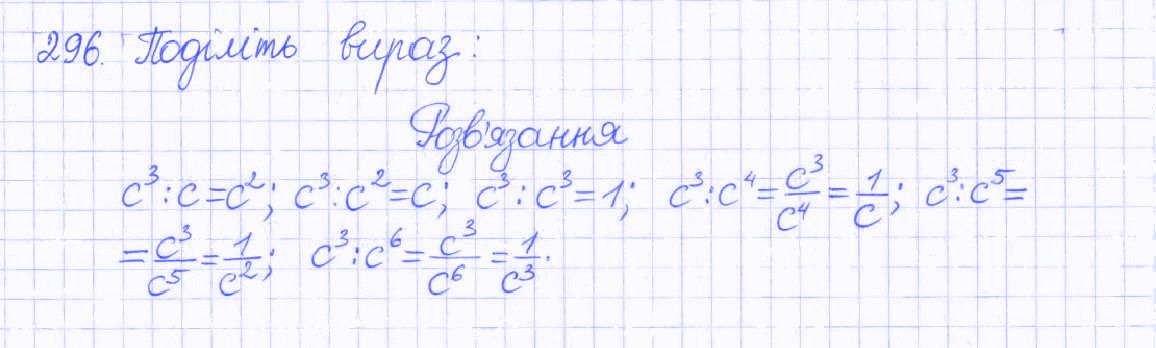 296. Поділіть вираз:
Розв'язання
c³:c=c²; c³:c²=c; c³:c³=1; c³:c⁴=c³/c⁴=1/c; c³:c⁵=
=c³/c⁵=1/c²; c³:c⁶=c³/c⁶=1/c³.